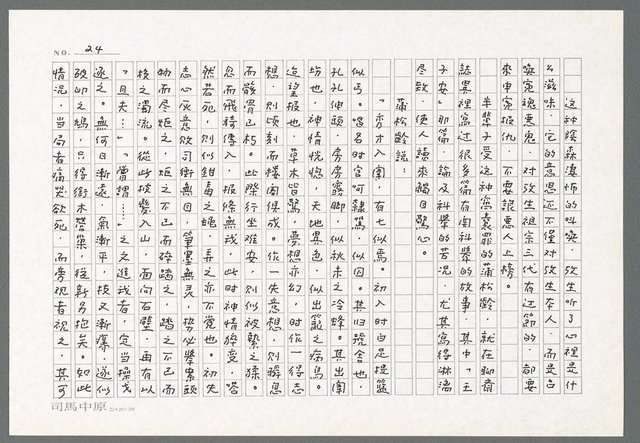 NO. 24
這種陰森凄怖的叫喚，攷生听了心裡是什
么滋味，它的意思还不僅对攷生本人，而是召
喚冤魂惡鬼，对攷生祖宗三代有过節的，都要
來申冤报仇，不要讓惡人上榜。
半輩子受这种窩囊罪的蒲松齡，就在聊齋
誌異裡寫过很多篇有関科舉的故事，其中「王
子安」那篇，論及科舉的苦況，尤其寫得淋漓
尽致，使人讀來觸目驚心。
蒲松齡說：
「秀才入闈，有七似焉。初入时白足提籃
似丐。唱名时官呵隸罵，似囚。其归號舍也，
孔孔伸頭，房房露脚，似秋末之冷蜂。其出闈
場也，神情恍惚，天地異色，似出籠之病鳥。
迨望报也，草木皆驚，夢想亦幻，时作一得志
想，則頃刻而楼阁俱成。作一失意想，則瞬息
而骸骨已朽。此際行坐难安，則似被縶之猱。
忽而飛騎傳入，报條無我，此时神情猝变，嗒
然若死，則似餌毒之蠅，弄之亦不觉也。初失
志心灰意败，大罵司衡無目，筆墨無灵，势必舉案頭
物而尽炬之，炬之不已而碎踏之，踏之不已而
投之濁流。從此披髮入山，面向石壁，再有以
「且夫…」「嘗謂……」之文進我者，定当操戈
逐之。無何日漸远，氣漸平，技又漸癢，遂似
破卵之鳩，只得銜木營巢，從新另抱矣。如此
情況，当局者痛哭欲死，而旁观者視之，其可
司馬中原 25×20=500